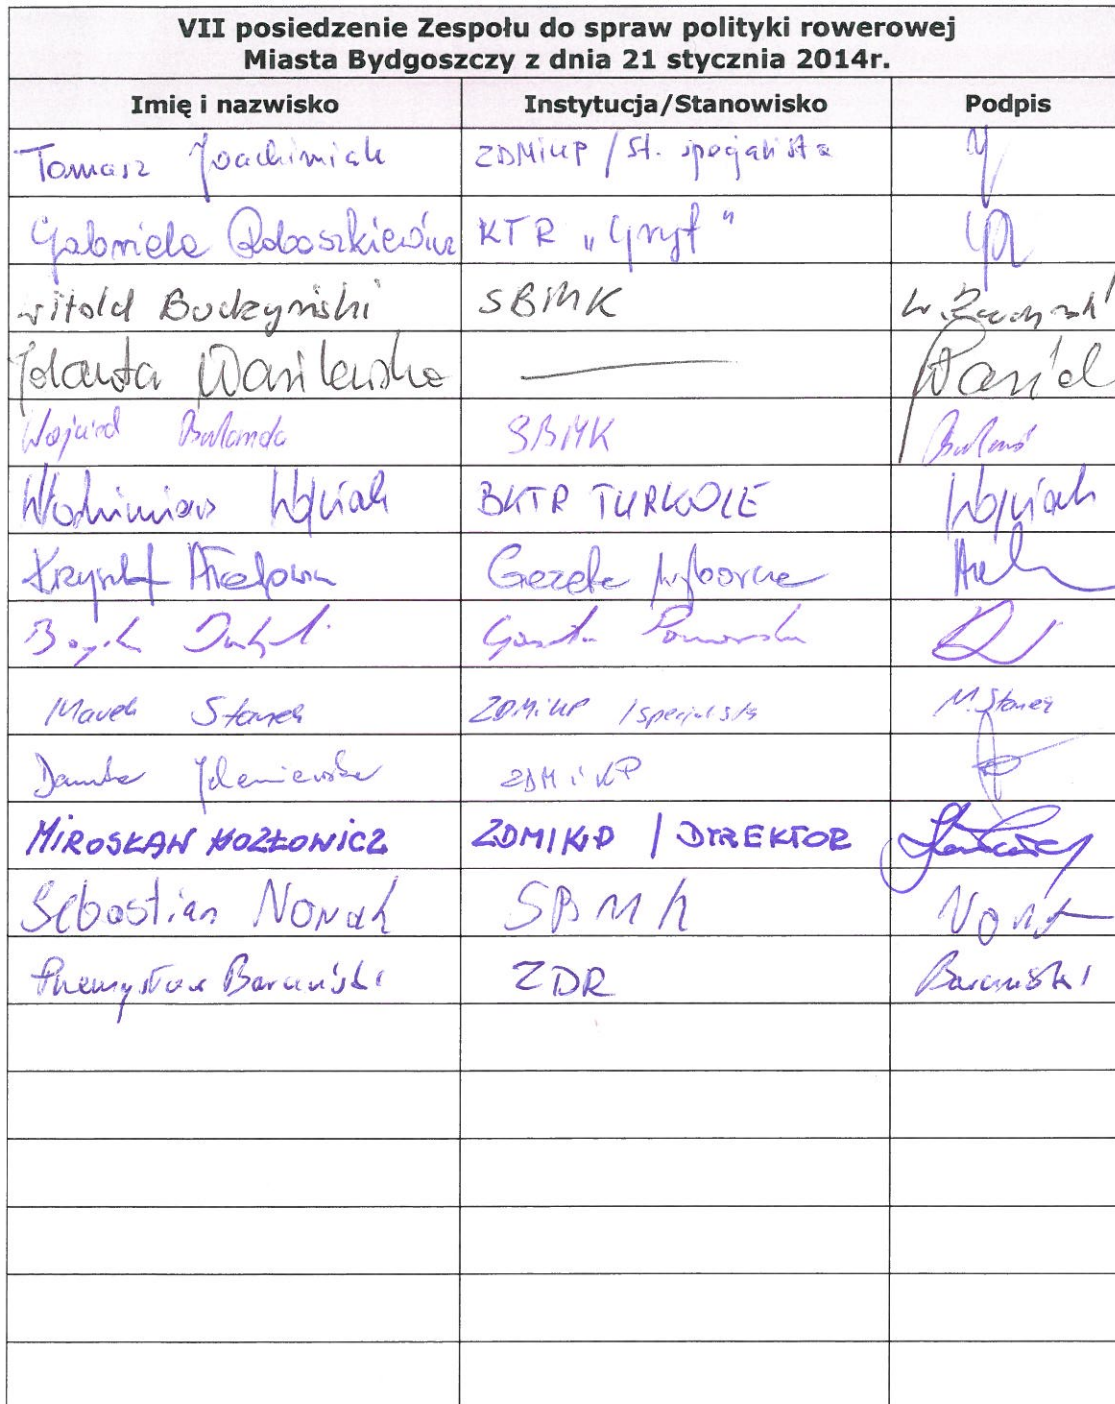 VII posiedzenie Zespołu do spraw polityki rowerowej
Miasta Bydgoszczy z dnia 21 stycznia 2014r.
Imię i nazwisko Instytucja/Stanowisko Podpis
Tomasz Joachimiak ZDMiKP / St. specjalista
Gabriela KTR „Gryf"
Witold Buczyński SBMK
Jolanta Wasilewska —
Wojciech Bulanda SBMK Buland
Włodzimierz Wójciak BKTR TURKOLE Wójciak
Krzysztof Gazeta Wyborcza
Gazeta Pomorska
Marek Stanek ZDMiKP / specjalista M. Stanek
Danuta ZDMiKP
MIROSŁAW KOZŁOWICZ ZDMIKP / DYREKTOR
Sebastian Nowak SBMK Nowak
Przemysław Barański ZDR Barański